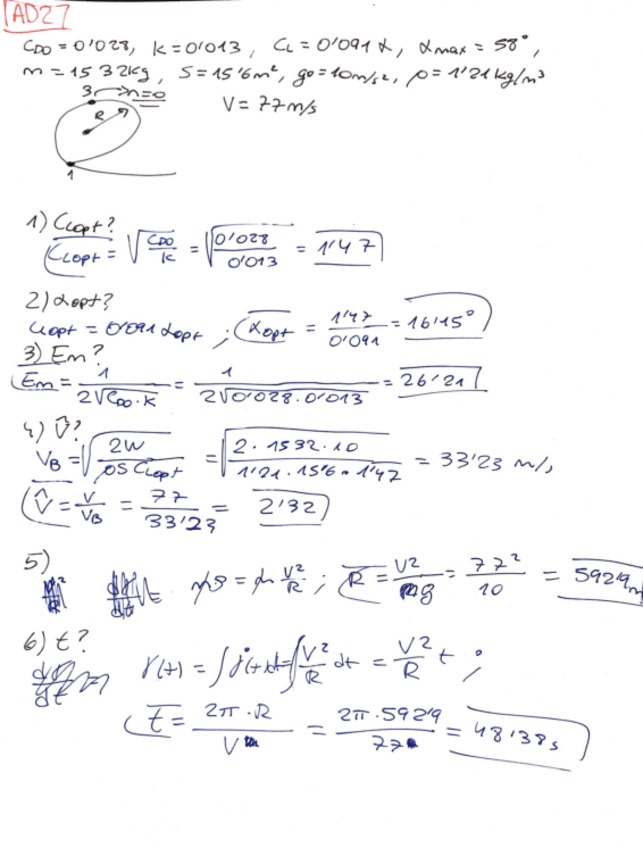 AD27
CD0 = 0'028, K = 0'013, CL = 0'091 α, αmax = 58°,
m = 1532kg, S = 15'6m², g0 = 10m/s², ρ = 1'21kg/m³
3 n=0
V = 77m/s
R
1
1) CLopt?
CLopt = √(CD0/K) = √(0'028/0'013) = 1'47
2) αopt?
CLopt = 0'091 αopt ; αopt = 1'47/0'091 = 16'15°
3) Em?
Em = 1/(2√(CD0·K)) = 1/(2√(0'028·0'013)) = 26'21
4) V̂?
VB = √(2W/(ρS CLopt)) = √(2·1532·10/(1'21·15'6·1'47)) = 33'23 m/s
V̂ = V/VB = 77/33'23 = 2'32
5)
mg = m V²/R ; R = V²/g = 77²/10 = 592'9m
6) t?
γ(t) = ∫γ̇(t)dt = ∫V²/R dt = V²/R t ;
t = 2π·R/V = 2π·592'9/77 = 48'38s